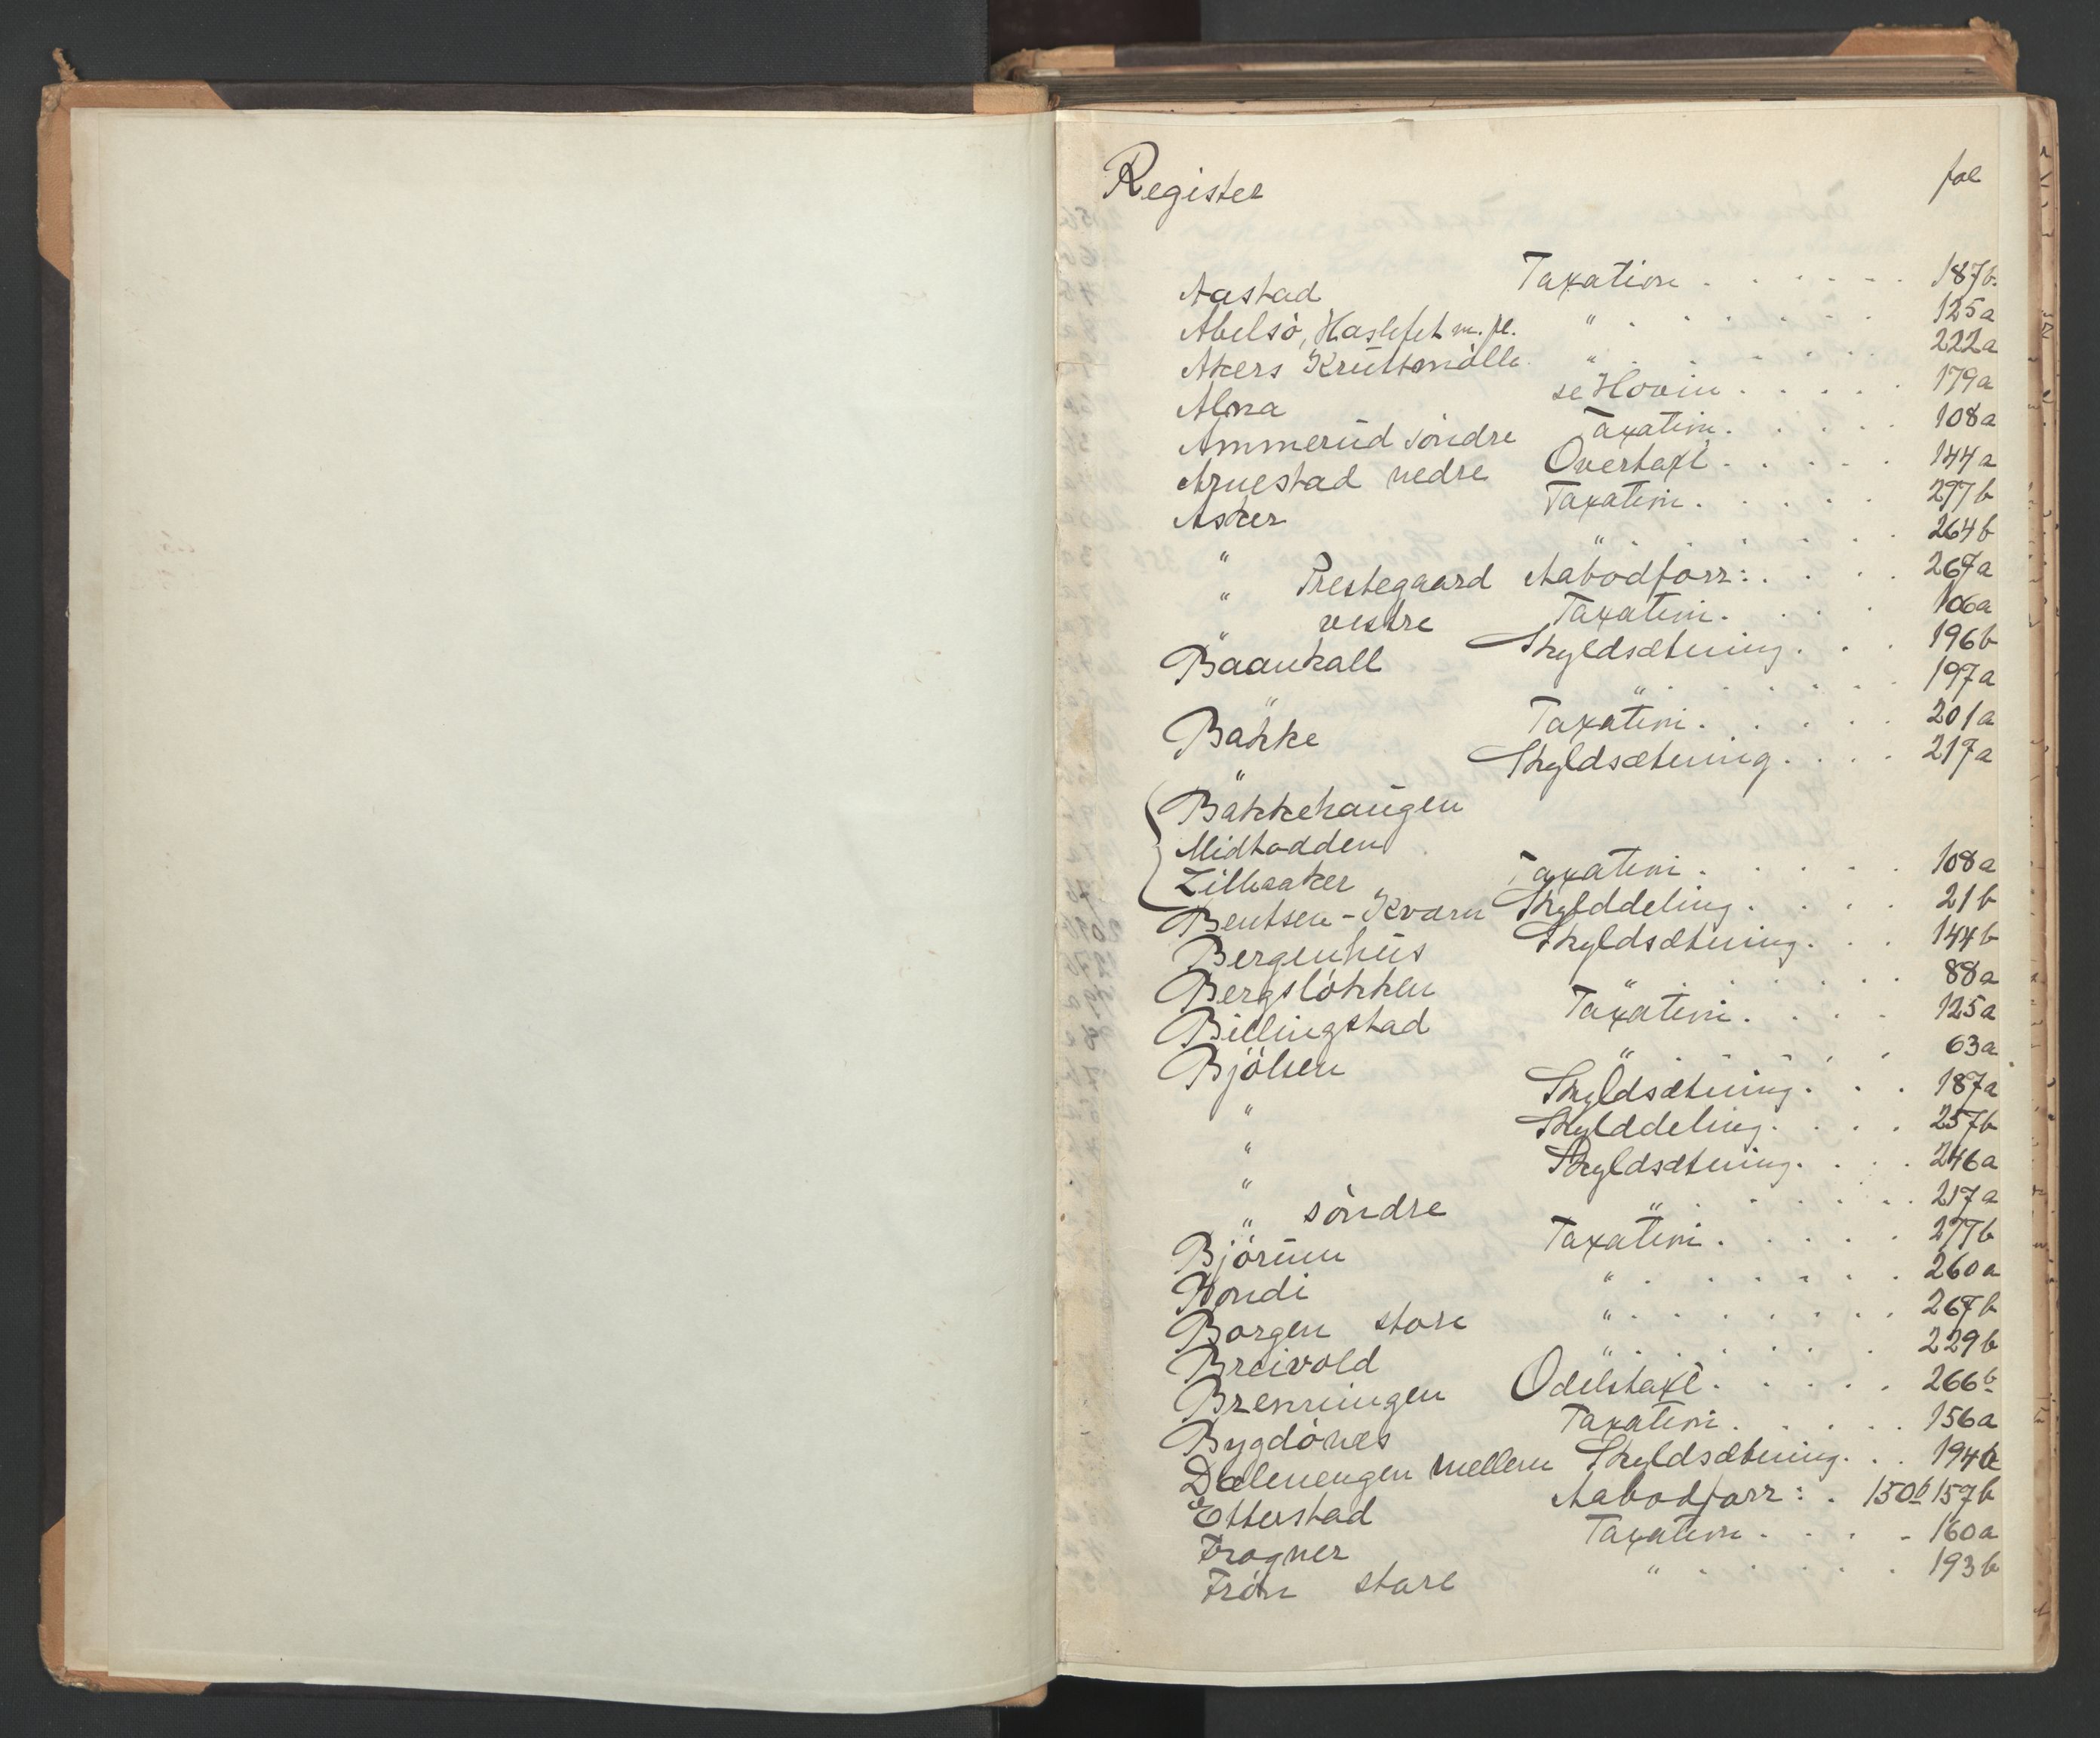 Register fol
Aastad Taxation . . . . . 187b.
Abelsö, Haslefet m.fl. " . . . . . 125a
Akers Kruttmölle " . . . . . 222a
Alna se Hovin . . . . . 179a
Ammerud söndre Taxation . . . . . 108a
Arnestad nedre Overtaxt . . . . . 144a
Asker Taxation . . . . . 297b
" " . . . . . 264b
" Prestegaard Aabodforr: . . . . 267a
" vestre Taxation . . . . 106a
Baankall Skyldsætning . . . 196b
" " . . . . . 197a
Bakke Taxation . . . . . 201a
" Skyldsætning . . . . 217a
Bakkehaugen
Midtodden
Lilleaker Taxation . . . . . 108a
Bentsen-Kværn Skylddeling . . . . 21b
Bergenhus Skyldsætning . . . 144b
Bergslökken " . . . . . 88a
Billingstad Taxation . . . . 125a
Bjölsen " . . . . . 63a
" Skyldsætning . . . 187a
" Skylddeling . . . . 257b
" Skyldsætning . . . . 246a
" söndre " . . . . . 217a
Björum Taxation . . . . . 277b
Bondi " . . . . . 260a
Borgen store " . . . . . 267b
Breivold " . . . . . 229b
Brenningen Odelstaxt . . . . . 266b
Bygdönes Taxation . . . . . 156a
Dælenengen mellem Skyldsætning . . . 194b
Etterstad Aabodforr: . 150b 157b
Frogner Taxation . . . . 160a
Frön store " . . . . . 193b